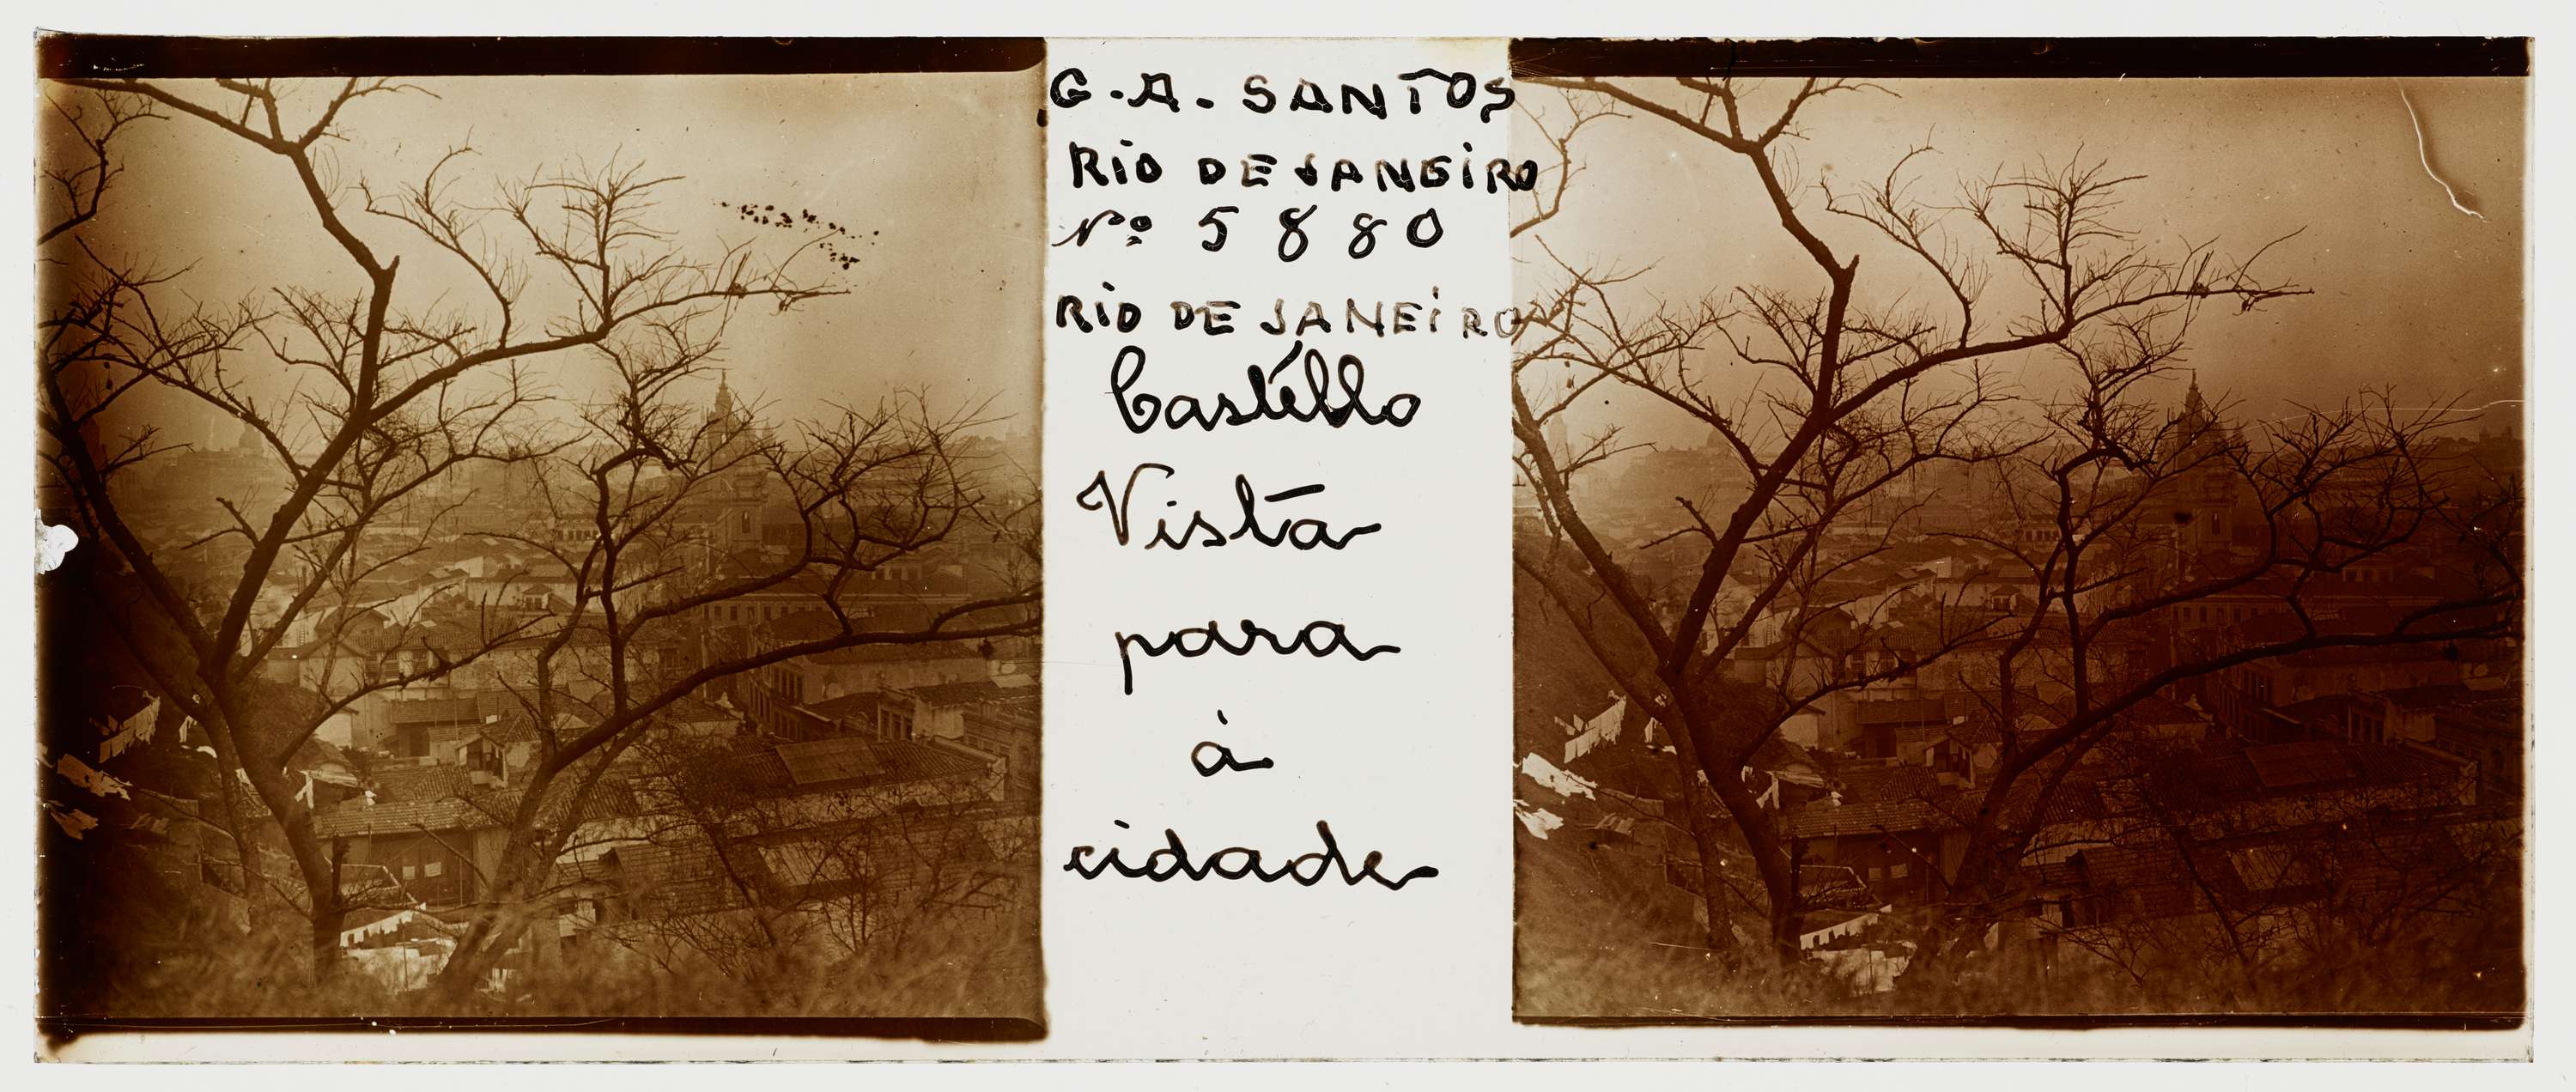 G. A. SANTOS
RIO DE JANEIRO
Nº 5880
RIO DE JANEIRO
Castéllo
Vista
para
à
cidade